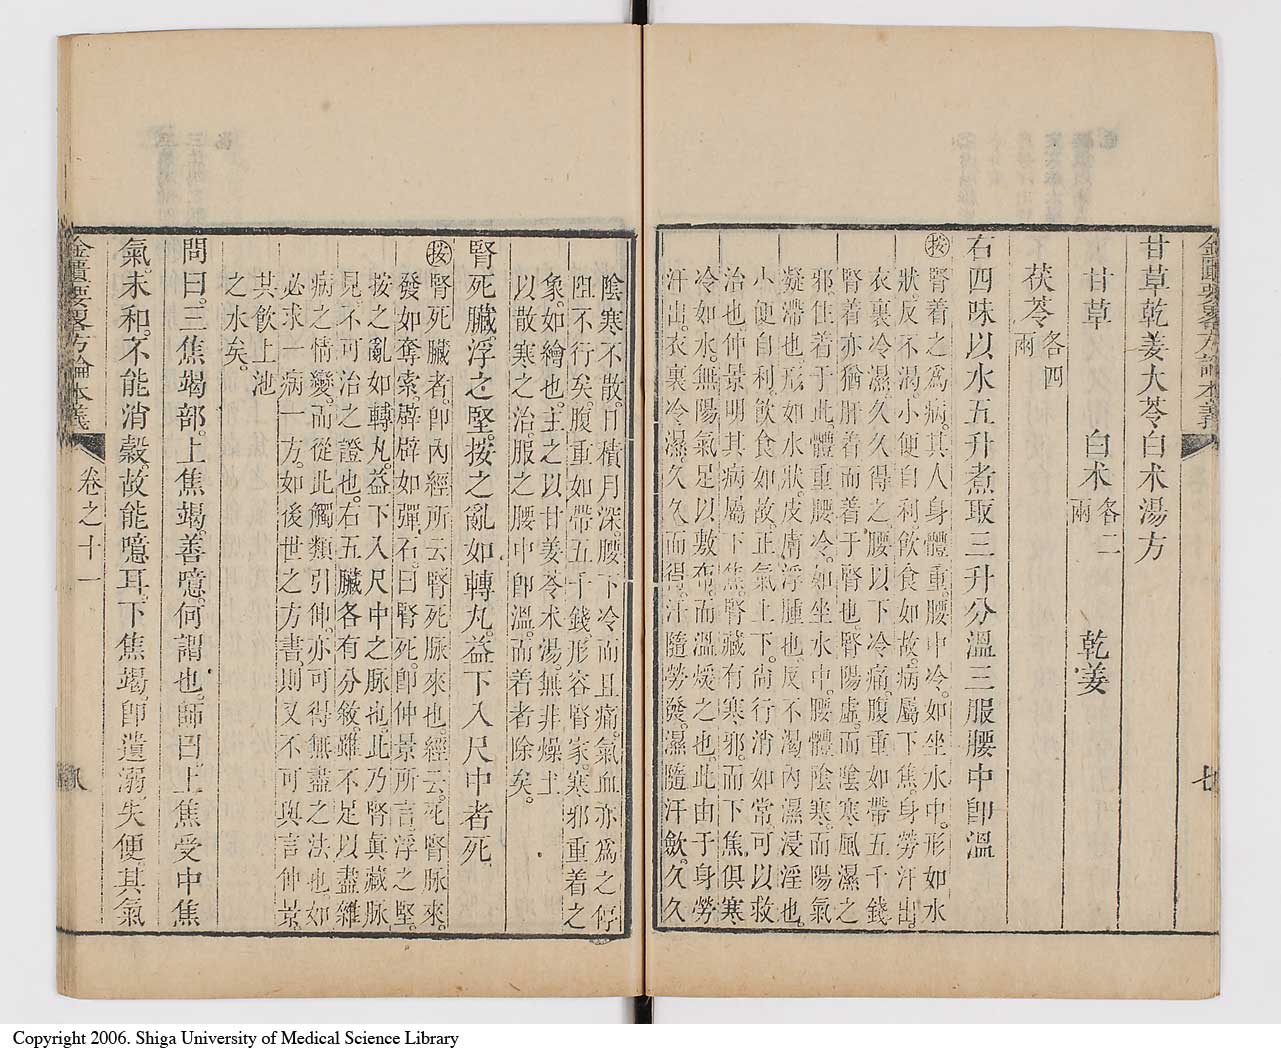 金匱要畧方論本義
七
甘草乾姜大苓白术湯方
甘草 白术各二兩 乾姜
茯苓各四兩
右四味以水五升煮取三升分溫三服腰中卽溫
按腎着之為病。其人身體重。腰中冷。如坐水中。形如水
狀。反不渴。小便自利。飲食如故。病屬下焦。身勞汗出。
衣裏冷濕。久久得之。腰以下冷痛。腹重如帶五千錢。
腎着亦猶肝着而着于腎也。腎陽虛。而陰寒風濕之
邪。住着于此。體重腰冷。如坐水中。腰體陰寒。而陽氣
凝滯也。形如水狀。皮膚浮腫也。反不渴。內濕浸淫也。
小便自利。飲食如故。正氣上下。尙行消如常。可以救
治也。仲景明其病屬下焦。腎藏有寒邪。而下焦俱寒
冷如水。無陽氣足以敷布。而溫煖之也。此由于身勞
汗出。衣裏冷濕。久久而得。汗隨勞發。濕隨汗斂。久久
陰寒不散。日積月深。腰下冷而且痛。氣血亦為之停
阻不行矣。腹重如帶五千錢。形容腎家。寒邪重着之
象。如繪也。主之以甘姜苓术湯。無非燥土
以散寒之治。服之腰中卽溫。而着者除矣。
腎死臟。浮之堅。按之亂如轉丸。益下入尺中者死
按腎死臟者。卽內經所云腎死脉來也。經云。死腎脉來。
發如奪索。辟辟如彈石。曰腎死。卽仲景所言。浮之堅。
按之亂如轉丸。益下入尺中之脉也。此乃腎眞藏脉
見。不可治之證也。右五臟各有分敘。雖不足以盡雜
病之情變。而從此觸類引伸。亦可得無盡之法也。如
必求一病一方。如後世之方書。則又不可與言仲景。
其飲上池
之水矣。
問曰。三焦竭部。上焦竭。善噫。何謂也。師曰。上焦受中焦
氣。未和。不能消穀。故能噫耳。下焦竭。卽遺溺失便。其氣
金匱要畧方論本義
卷之十一
八
Copyright 2006. Shiga University of Medical Science Library